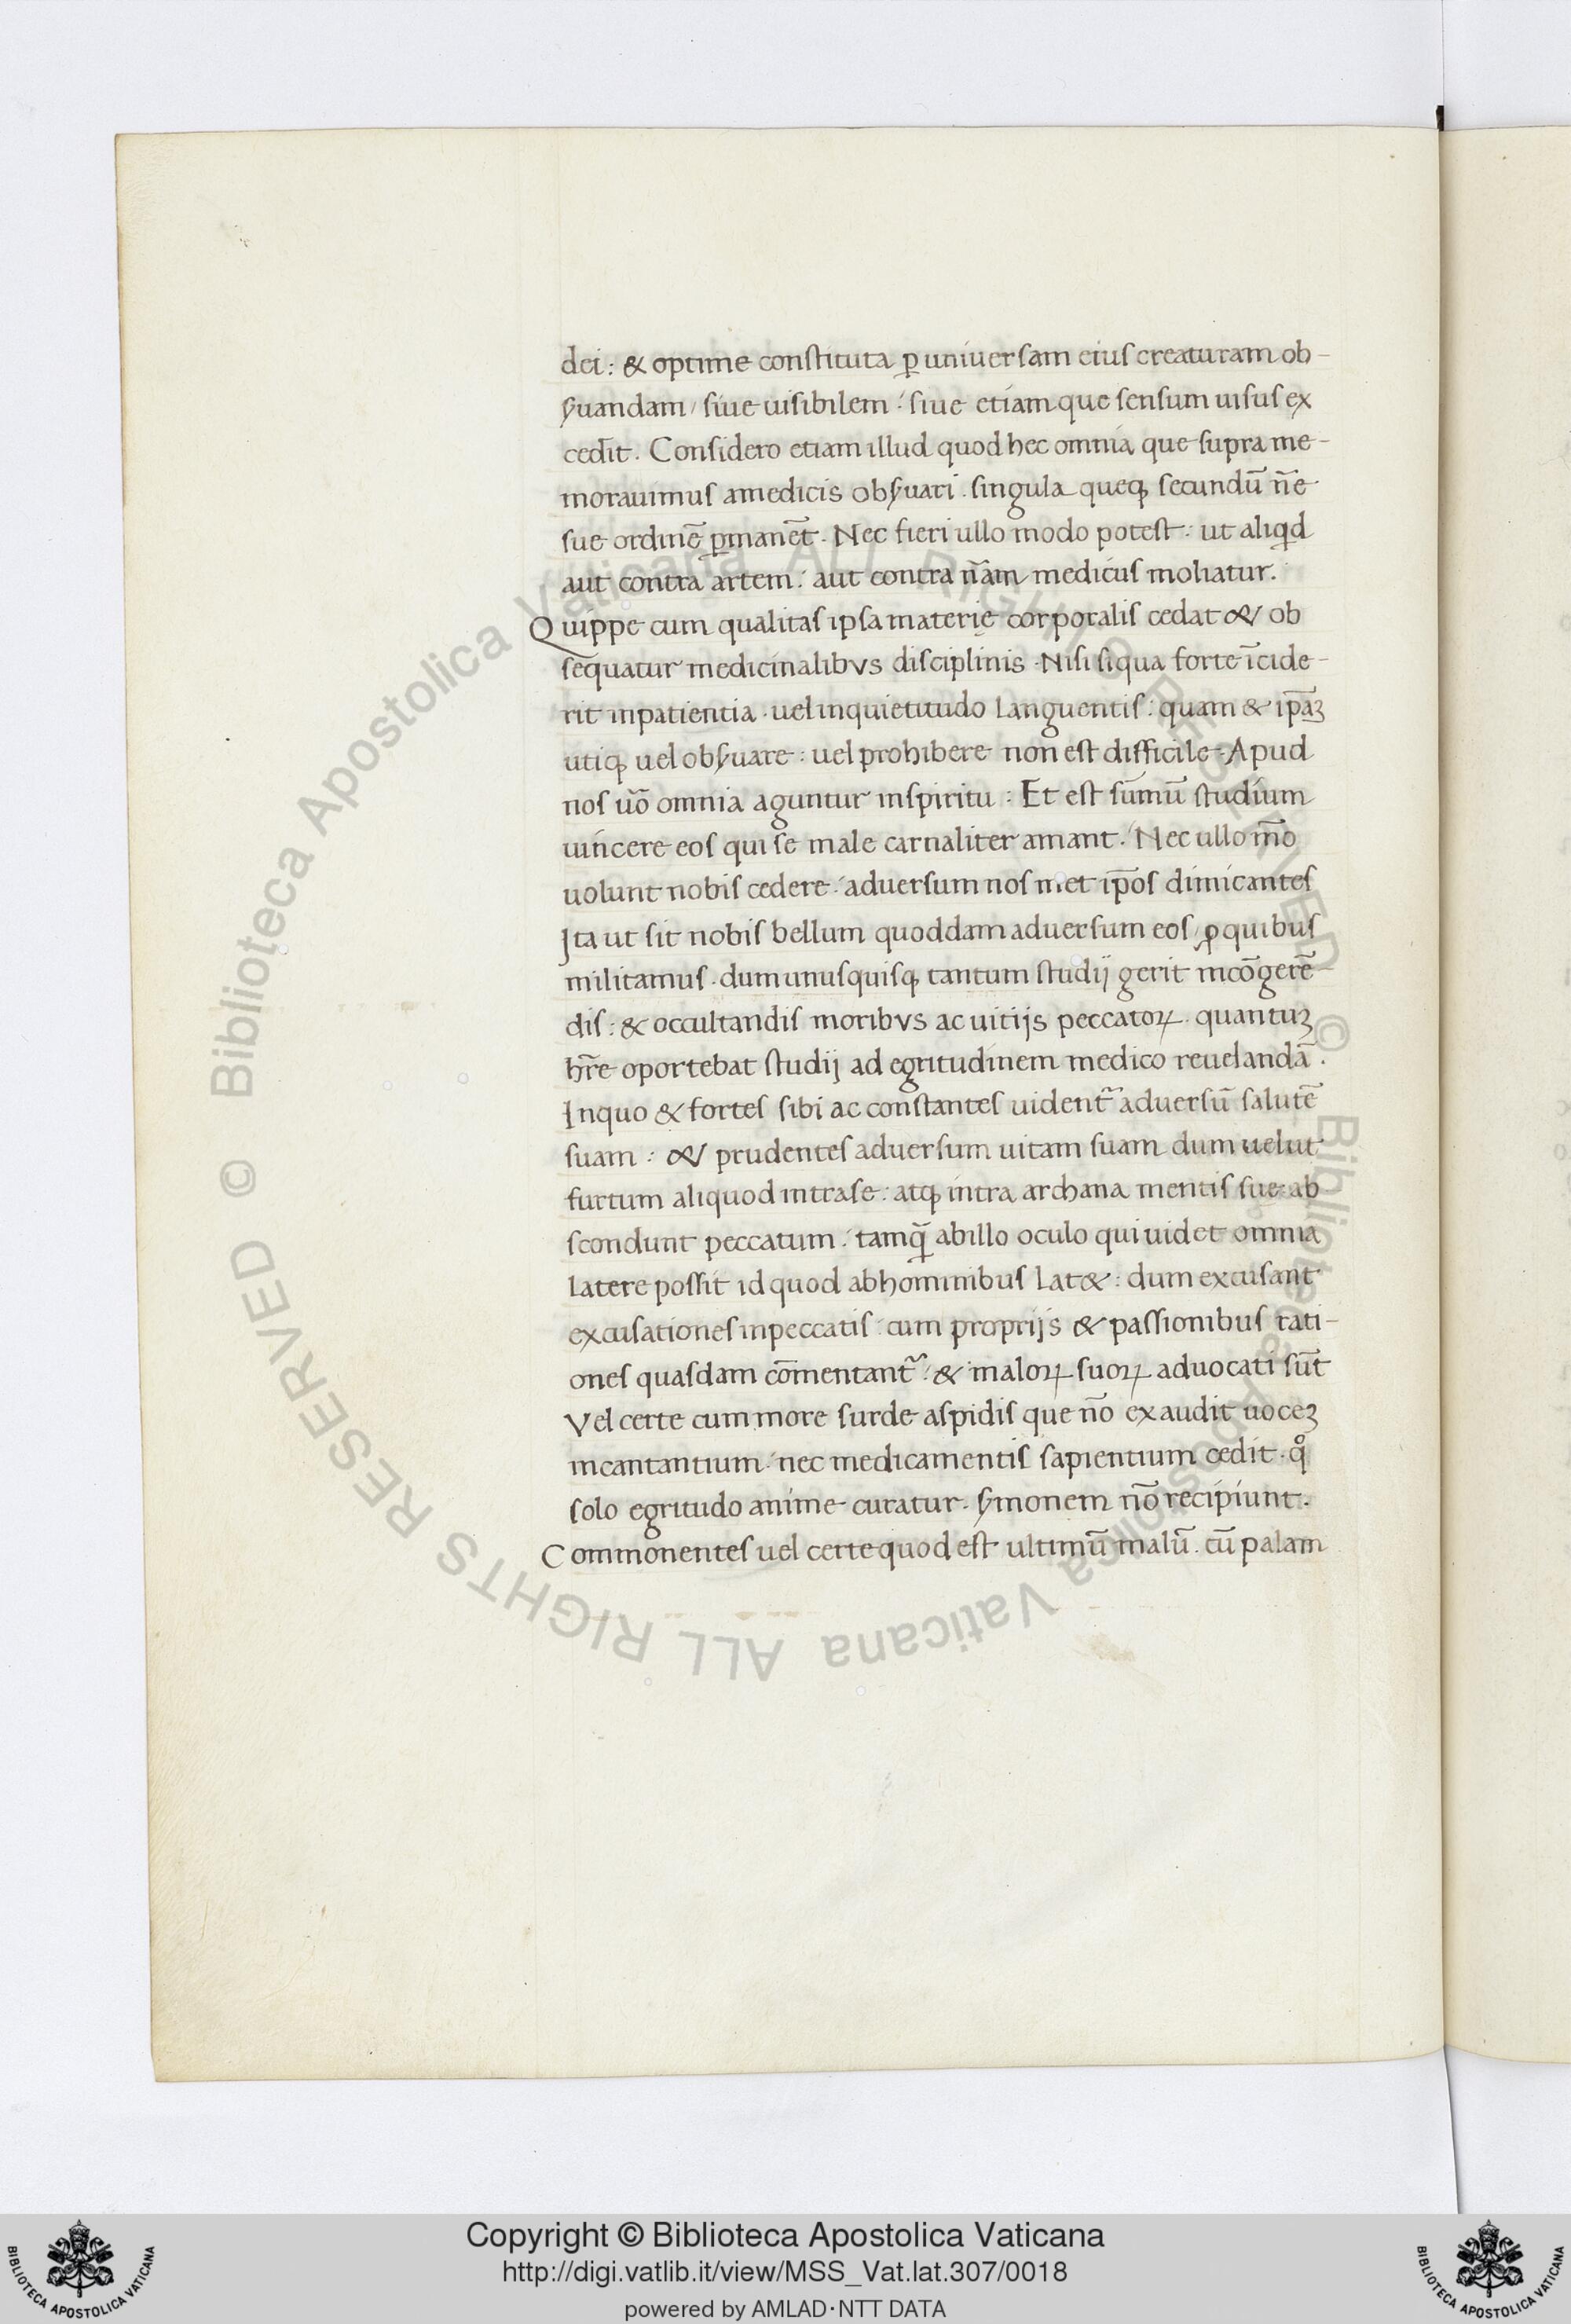 dei: & optime constituta ꝑ uniuersam eius creaturam ob-
ẜuandam / siue uisibilem: siue etiam que sensum uisus ex
cedit. Considero etiam illud quod hec omnia que supra me-
morauimus amedicis obẜuari. singula queqꝫ secundū nr̄e
sue ordinē ꝑmanēt. Nec fieri ullo modo potest: ut aliqd
aut contra artem: aut contra nāam medicus moliatur.
Quippe cum qualitas ipsa materię corporalis cedat & ob
sequatur medicinalibus disciplinis. Nisi siqua forte īcide-
rit inpatientia. uel inquietitudo languentis: quam & ip̄aꝫ
utiqꝫ uel obẜuare: uel prohibere non est difficile. Apud
nos uō omnia aguntur inspiritu: Et est sūmū studium
uincere eos qui se male carnaliter amant. Nec ullo m̄o
uolunt nobis cedere: aduersum nos met ip̄os dimicantes
Ita ut sit nobis bellum quoddam aduersum eos / ꝓ quibus
militamus. dum unusquisqꝫ tantum studij gerit incōgerē-
dis: & occultandis moribus ac uitijs peccatoꝝ. quantuꝫ
hr̄e oportebat studij ad egritudinem medico reuelandā.
Inquo & fortes sibi ac constantes uident᷑ aduersū salutē
suam: & prudentes aduersum uitam suam dum uelut
furtum aliquod intrase: atqꝫ intra archana mentis sue ab
scondunt peccatum: tamq̄ abillo oculo qui uidet omnia
latere possit id quod abhominibus lat&: dum excusant
excusationes inpeccatis: cum proprijs & passionibus rati-
ones quasdam cōmentant᷑: & maloꝝ suoꝝ aduocati sūt
Vel certe cum more surde aspidis que nō exaudit uoceꝫ
incantantium: nec medicamentis sapientium cedit. qͦ
solo egritudo anime curatur. ẜmonem nō recipiunt.
Commonentes uel certe quod est ultimū malū. cū palam
Copyright © Biblioteca Apostolica Vaticana
http://digi.vatlib.it/view/MSS_Vat.lat.307/0018
powered by AMLAD·NTT DATA
BIBLIOTECA APOSTOLICA VATICANA
BIBLIOTECA APOSTOLICA VATICANA
© Biblioteca Apostolica Vaticana ALL RIGHTS RESERVED © Biblioteca Apostolica Vaticana ALL RIGHTS RESERVED